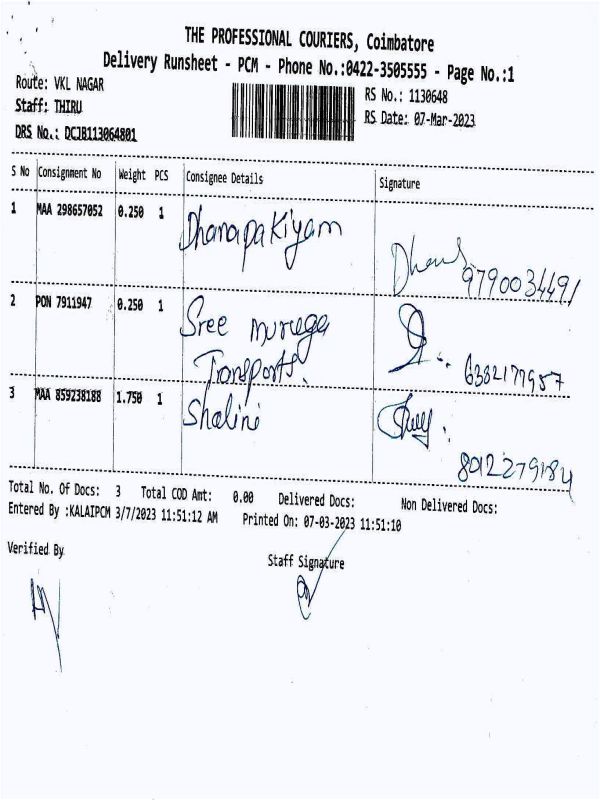 THE PROFESSIONAL COURIERS, Coimbatore
Delivery Runsheet - PCM - Phone No.:0422-3505555 - Page No.:1
Route: VKL NAGAR
RS No.: 1130648
Staff: THIRU
RS Date: 07-Mar-2023
DRS No.: DCJB113064801
S No Consignment No Weight PCS Consignee Details Signature
1 MAA 298657052 0.250 1 Dhanapakiyam
9790034491
2 PON 7911947 0.250 1 Sree muruga
Transports.
6382177957
3 MAA 859238188 1.750 1 Shalini
8012279184
Total No. Of Docs: 3 Total COD Amt: 0.00 Delivered Docs: Non Delivered Docs:
Entered By :KALAIPCM 3/7/2023 11:51:12 AM Printed On: 07-03-2023 11:51:10
Verified By
Staff Signature